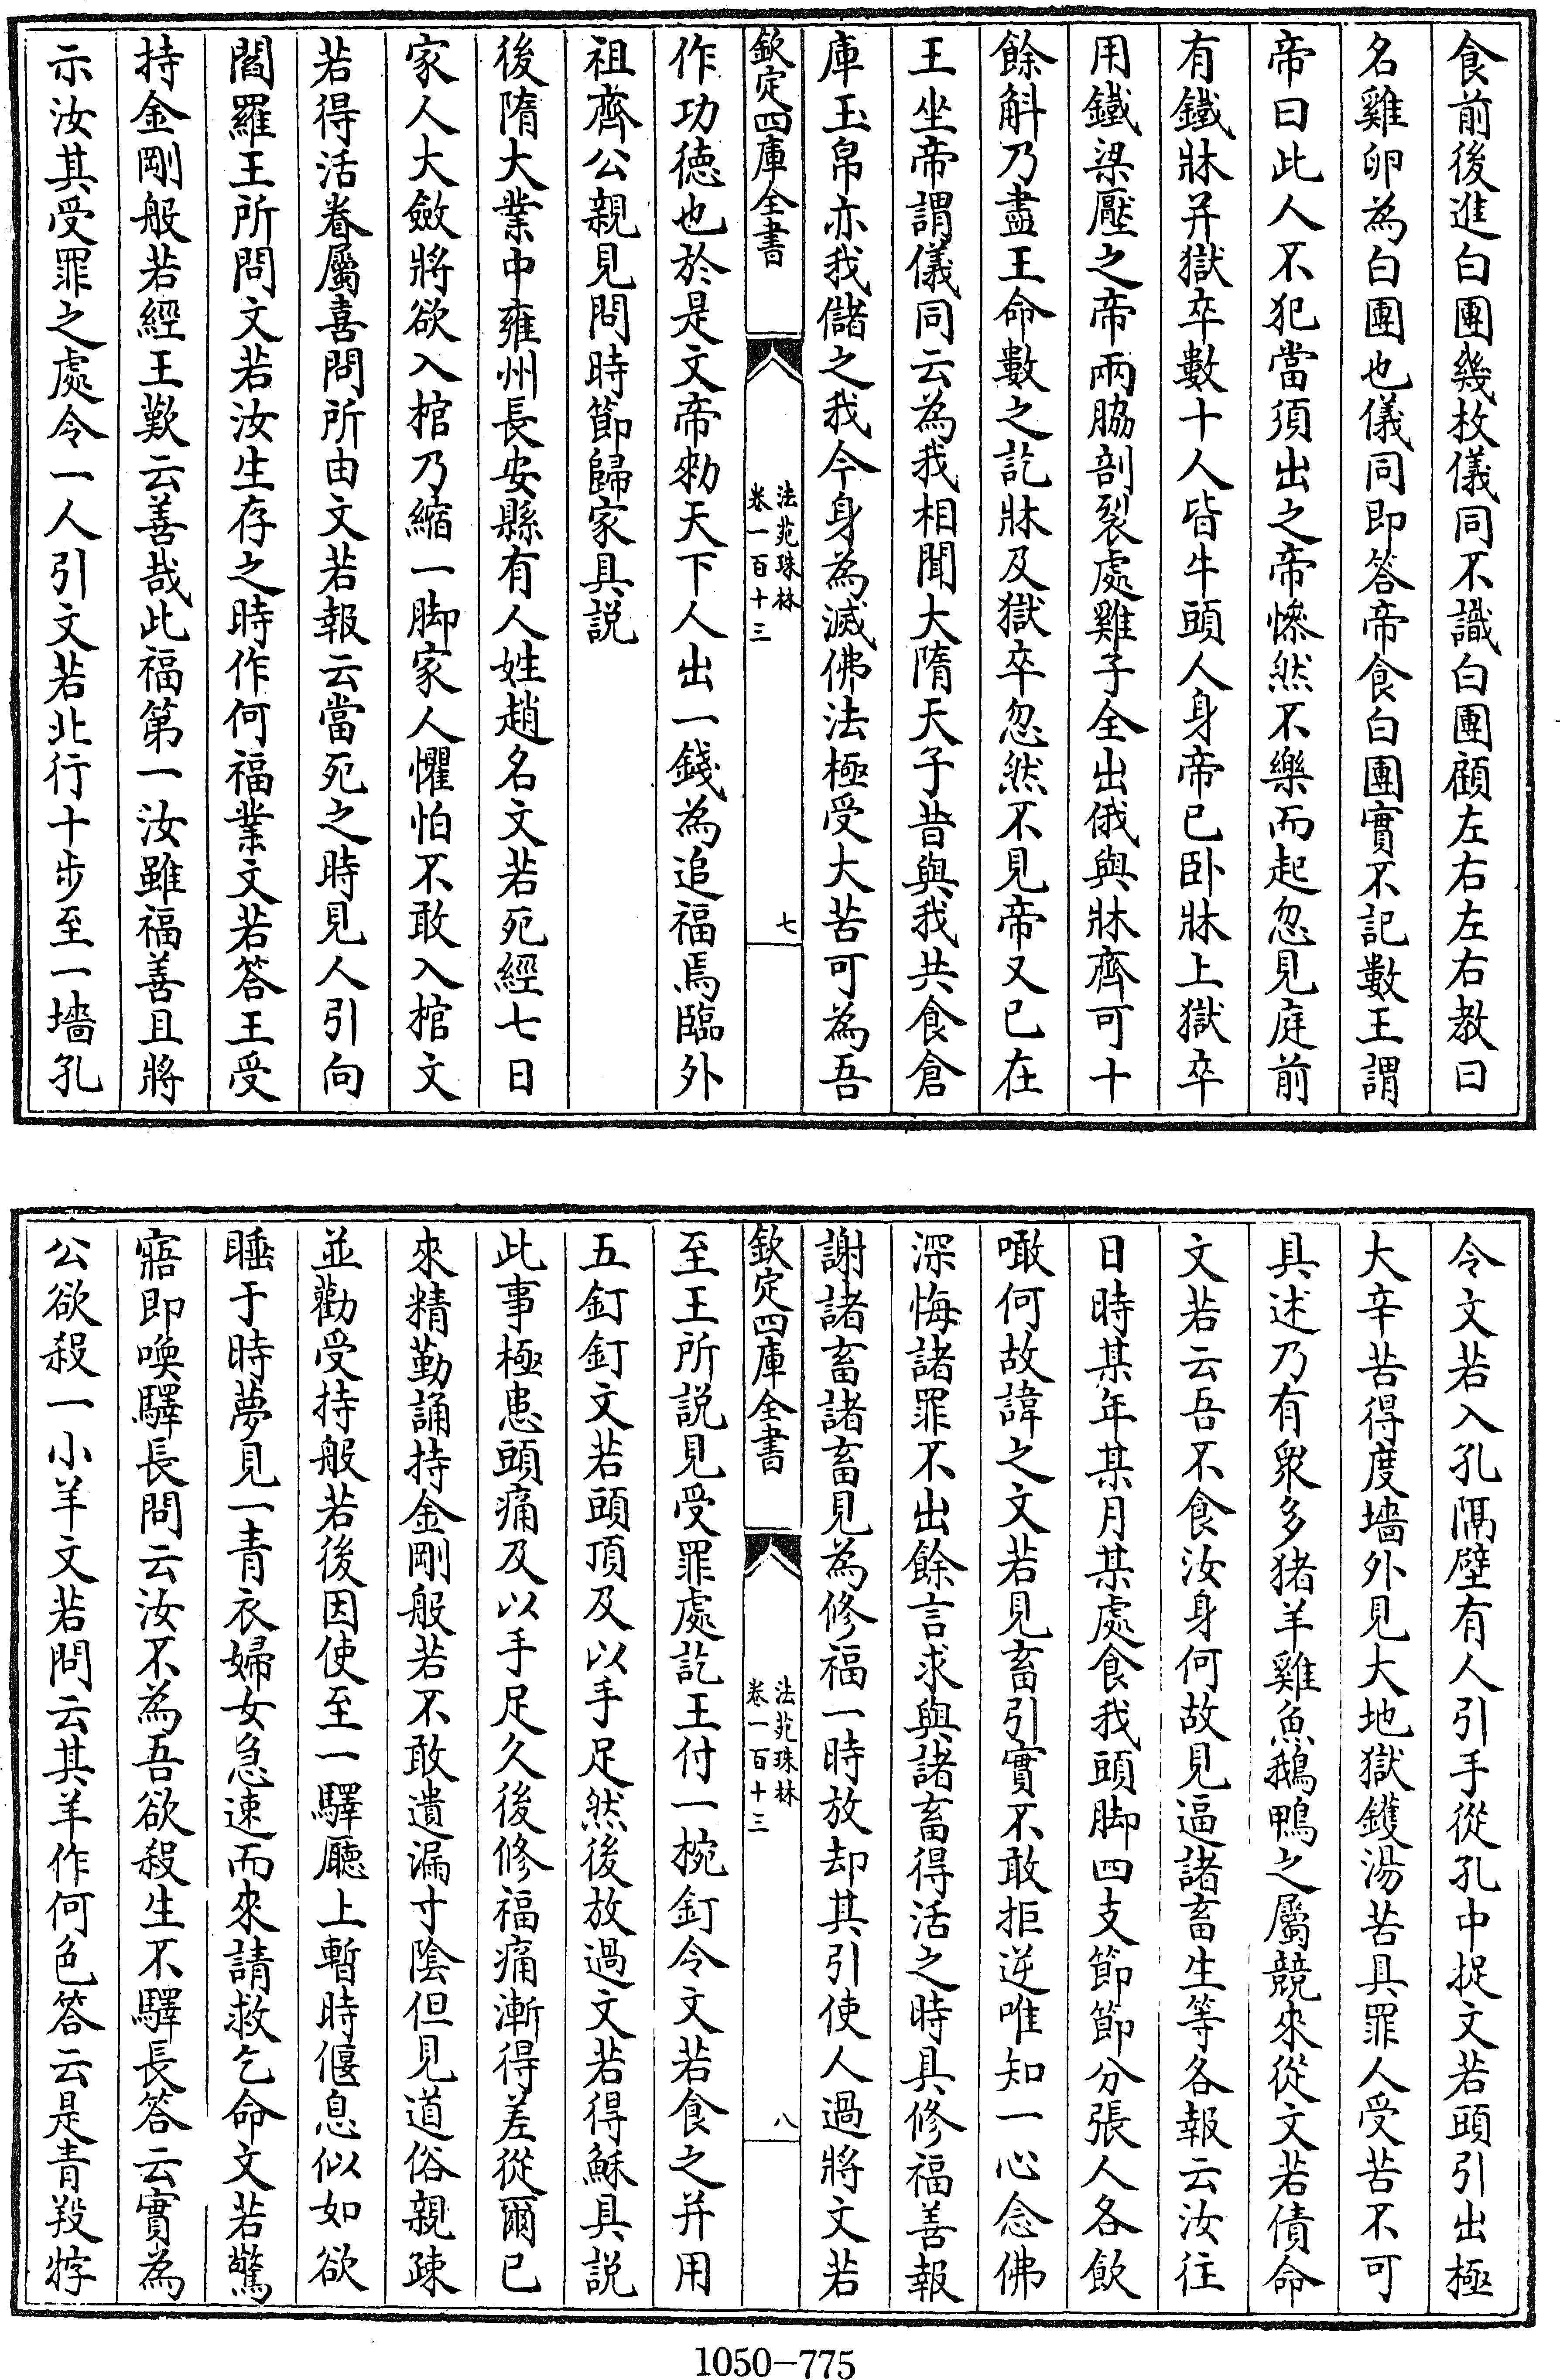 食前後進白團幾枚儀同不識白團顧左右左右教曰
名雞卵為白團也儀同即答帝食白團實不記數王謂
帝曰此人不犯當須出之帝慘然不樂而起忽見庭前
有鐵牀并獄卒數十人皆牛頭人身帝已卧牀上獄卒
用鐵梁壓之帝兩脇剖裂處雞子全出俄與牀齊可十
餘斛乃盡王命數之訖牀及獄卒忽然不見帝又已在
王坐帝謂儀同云為我相聞大隋天子昔與我共食倉
庫玉帛亦我儲之我今身為滅佛法極受大苦可為吾
欽定四庫全書
法苑珠林
卷一百十三
七
作功德也於是文帝勑天下人出一錢為追福焉臨外
祖齊公親見問時節歸家具説
後隋大業中雍州長安縣有人姓趙名文若死經七日
家人大斂將欲入棺乃縮一脚家人懼怕不敢入棺文
若得活眷屬喜問所由文若報云當死之時見人引向
閻羅王所問文若汝生存之時作何福業文若答王受
持金剛般若經王歎云善哉此福第一汝雖福善且將
示汝其受罪之處令一人引文若北行十步至一墻孔
令文若入孔隔壁有人引手從孔中捉文若頭引出極
大辛苦得度墻外見大地獄鑊湯苦具罪人受苦不可
具述乃有衆多猪羊雞魚鵝鴨之屬競來從文若債命
文若云吾不食汝身何故見逼諸畜生等各報云汝往
日時某年某月某處食我頭脚四支節節分張人各飲
噉何故諱之文若見畜引實不敢拒逆唯知一心念佛
深悔諸罪不出餘言求與諸畜得活之時具修福善報
謝諸畜諸畜見為修福一時放却其引使人過將文若
欽定四庫全書
法苑珠林
卷一百十三
八
至王所説見受罪處訖王付一椀釘令文若食之并用
五釘釘文若頭頂及以手足然後放過文若得穌具説
此事極患頭痛及以手足久後修福痛漸得差從爾已
來精勤誦持金剛般若不敢遺漏寸陰但見道俗親疎
並勸受持般若後因使至一驛廳上暫時偃息似如欲
睡于時夢見一青衣婦女急速而來請救乞命文若驚
寤即喚驛長問云汝不為吾欲殺生不驛長答云實為
公欲殺一小羊文若問云其羊作何色答云是青羖牸
1050-775